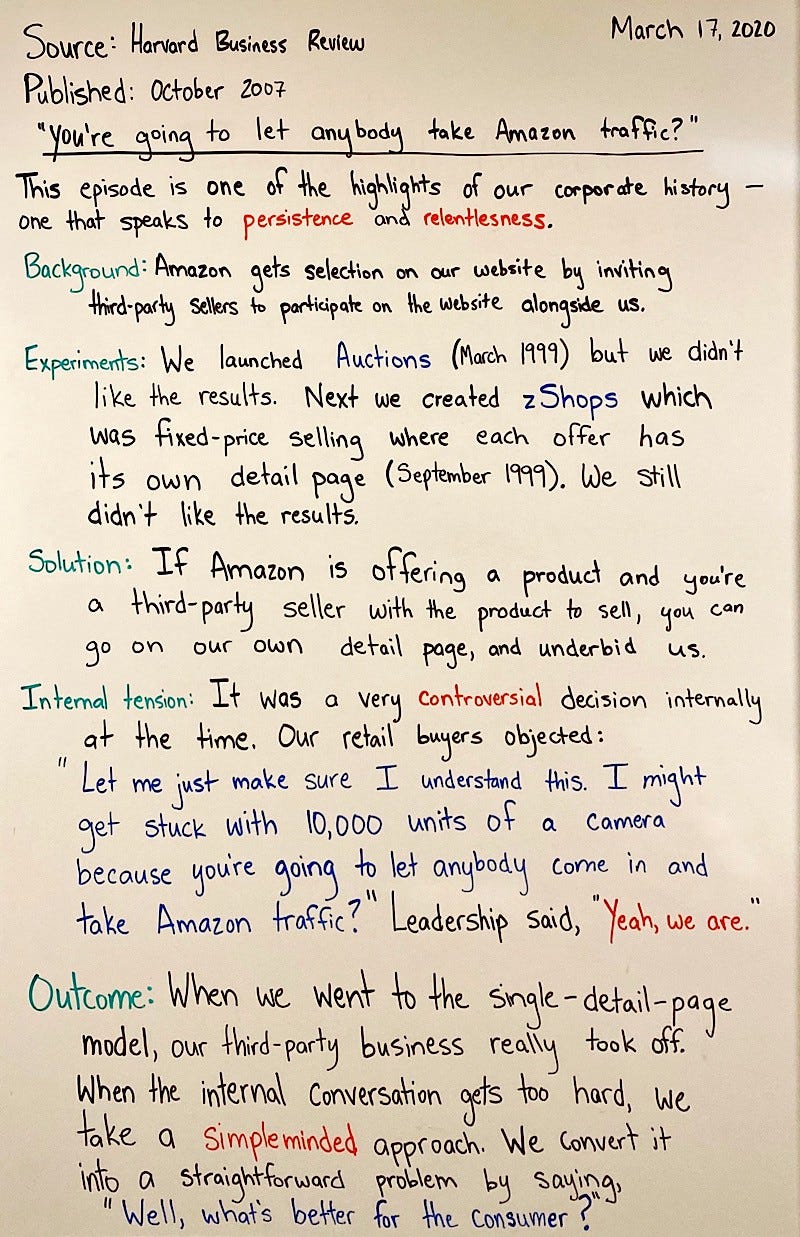 Source: Harvard Business Review
March 17, 2020
Published: October 2007
"You're going to let anybody take Amazon traffic?"
This episode is one of the highlights of our corporate history —
one that speaks to persistence and relentlesness.
Background: Amazon gets selection on our website by inviting
third-party sellers to participate on the website alongside us.
Experiments: We launched Auctions (March 1999) but we didn't
like the results. Next we created zShops which
was fixed-price selling where each offer has
its own detail page (September 1999). We still
didn't like the results.
Solution: If Amazon is offering a product and you're
a third-party seller with the product to sell, you can
go on our own detail page, and underbid us.
Internal tension: It was a very controversial decision internally
at the time. Our retail buyers objected:
"Let me just make sure I understand this. I might
get stuck with 10,000 units of a camera
because you're going to let anybody come in and
take Amazon traffic?" Leadership said, "Yeah, we are."
Outcome: When we went to the single-detail-page
model, our third-party business really took off.
When the internal conversation gets too hard, we
take a simpleminded approach. We convert it
into a straightforward problem by saying,
"Well, what's better for the consumer?"